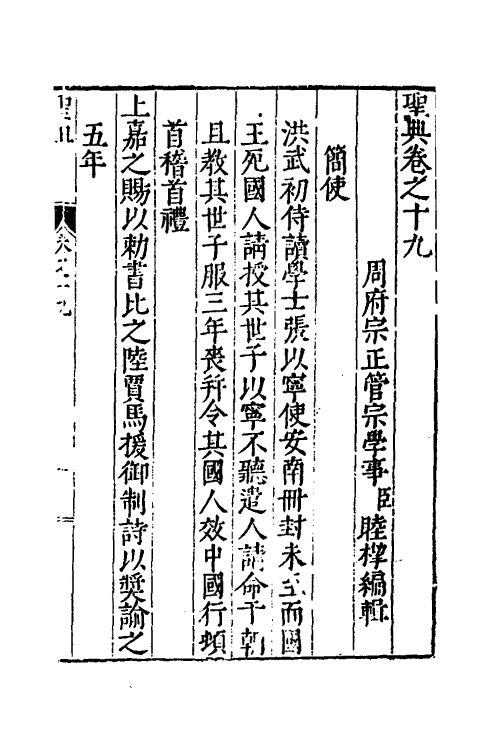 聖典卷之十九
周府宗正管宗學事臣睦㮮編輯
簡使
洪武初侍讀學士張以寧使安南冊封未至而國
王死國人請授其世子以寧不聽遣人請命于朝
且教其世子服三年喪并令其國人效中國行頓
首稽首禮
上嘉之賜以勅書比之陸賈馬援御制詩以奬諭之
五年